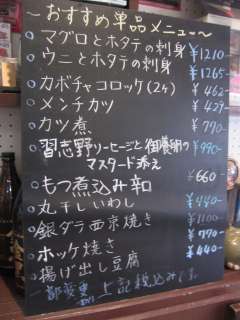 ~おすすめ単品メニュー~
○マグロとホタテの刺身 ¥1210
○ウニとホタテの刺身 ¥1265
○カボチャコロッケ(2ヶ) ¥462
○メンチカツ ¥429
○カツ煮 ¥770
○習志野ソーセージと ¥990
マスタード添え
○もつ煮込み辛口 ¥660
○丸干しいわし ¥440
○銀ダラ西京焼き ¥1100
○ホッケ焼き ¥770
○揚げ出し豆腐 ¥440
上記税込みです。